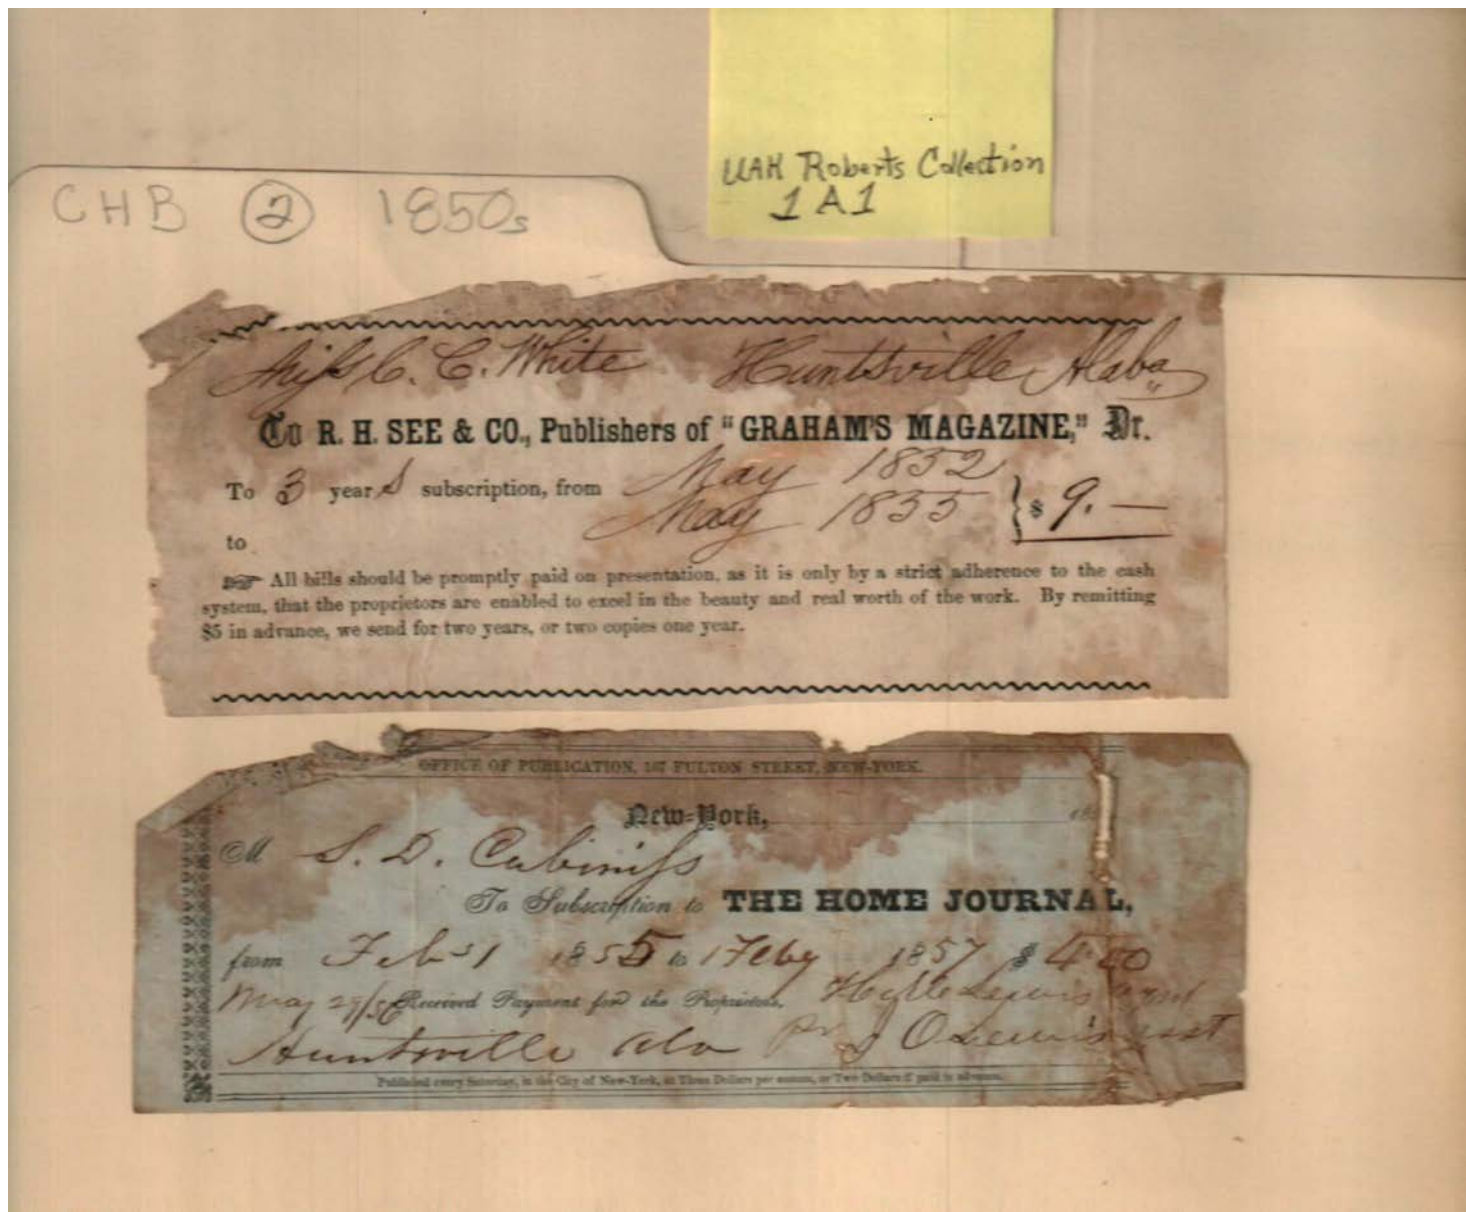 UAH Roberts Collection
1A1
CHB ② 1850s
Miss C. C. White Huntsville Alaba
To R. H. SEE & CO., Publishers of "GRAHAM'S MAGAZINE," Dr.
To 3 years subscription, from May 1852
to May 1855 } $ 9. —
☞ All bills should be promptly paid on presentation, as it is only by a strict adherence to the cash
system, that the proprietors are enabled to excel in the beauty and real worth of the work. By remitting
$5 in advance, we send for two years, or two copies one year.
OFFICE OF PUBLICATION, 107 FULTON STREET, NEW-YORK.
New-York, 18
M S. D. Cabiniss
To Subscription to THE HOME JOURNAL,
from Feb 1 1855 to 1 Feby 1857 $ 4.50
May 29/56 Received Payment for the Proprietors, Lewis agent
Huntsville Ala pr J O Lewis asst
Published every Saturday, in the City of New-York, at Three Dollars per annum, or Two Dollars if paid in advance.